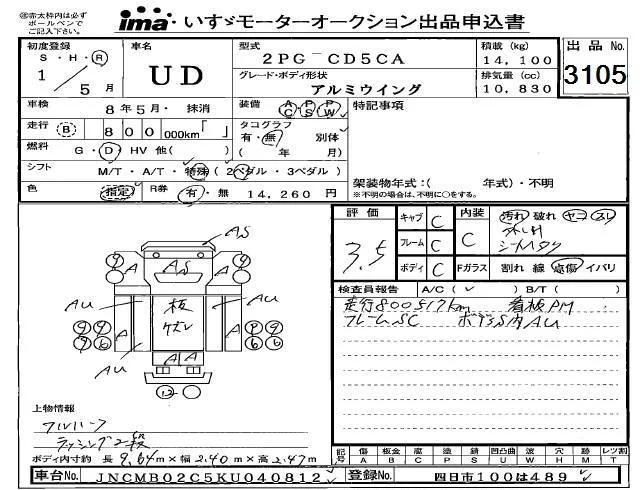 ㊟赤太枠内は必ず
ボールペンで
ご記入下さい。
ima いすゞモーターオークション出品申込書
初度登録
S・H・R
1 / 5 月
車名
UD
型式
2PG-CD5CA
積載 (kg)
14,100
出品No.
3105
グレード・ボディ形状
アルミウイング
排気量 (cc)
10,830
車検
8年5月・ 抹消
装備
AC PS PW
特記事項
走行 (B) 800 000km「 」
タコグラフ
有・無 別体
( 年 月)
燃料 G・D・HV 他( )
シフト M/T・A/T・特殊 (2ペダル・3ペダル)
色 指定 R券 有・無 14,260 円
架装物年式：( 年式)・不明
※不明の場合は、不明に○をする。
評価
3.5
キャブ C
フレーム C
ボディ C
内装
C
汚れ 破れ ヤニ スレ
Fガラス 割れ 線 点傷 イバリ
検査員報告 A/C( ✓ ) B/T( )
走行800517km 看板PM
フレームSC ボデー内AU
AS
AS
AU
A
A
板
AU
A
A
A
AU
上物情報
フルハーフ
ラッシング2段
ボディ内寸約 長 9.64m×幅 2.40m×高 2.47m
記号 傷A 板金B 腐C 塗P 錆S 凹凸曲U 波W 穴H 跡M レツ割T
車台No. JNCMB02C5KU040812
登録No. 四日市100は489